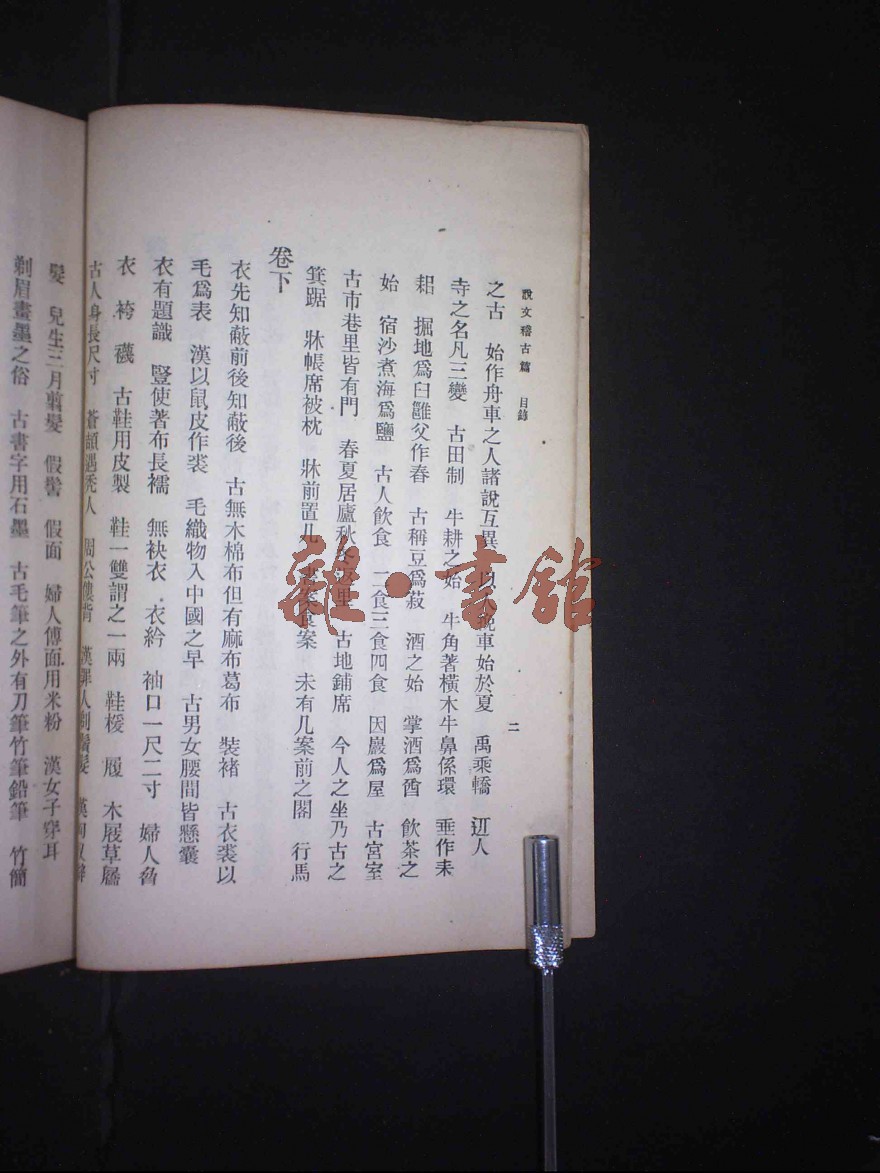 說文稽古篇 目錄
二
之古 始作舟車之人諸說互異 以 車始於夏 禹乘轎 辺人
寺之名凡三變 古田制 牛耕之始 牛角著橫木牛鼻係環 垂作耒
耜 掘地爲臼雝父作舂 古稱豆爲菽 酒之始 掌酒爲酋 飲茶之
始 宿沙煮海爲鹽 古人飲食 二食三食四食 因巖爲屋 古宮室
古市巷里皆有門 春夏居廬秋冬 里 古地鋪席 今人之坐乃古之
箕踞 牀帳席被枕 牀前置几 案食案 未有几案前之閣 行馬
卷下
衣先知蔽前後知蔽後 古無木棉布但有麻布葛布 裝褚 古衣裘以
毛爲表 漢以鼠皮作裘 毛織物入中國之早 古男女腰間皆懸囊
衣有題識 豎使著布長襦 無袂衣 衣紟 袖口一尺二寸 婦人脅
衣 袴 襪 古鞋用皮製 鞋一雙謂之一兩 鞋楥 履 木屐草屩
古人身長尺寸 蒼頡遇禿人 周公僂背 漢罪人剃鬚髮
髮 兒生三月翦髮 假髻 假面 婦人傅面用米粉 漢女子穿耳
剃眉畫墨之俗 古書字用石墨 古毛筆之外有刀筆竹筆鉛筆 竹簡
雜·書館